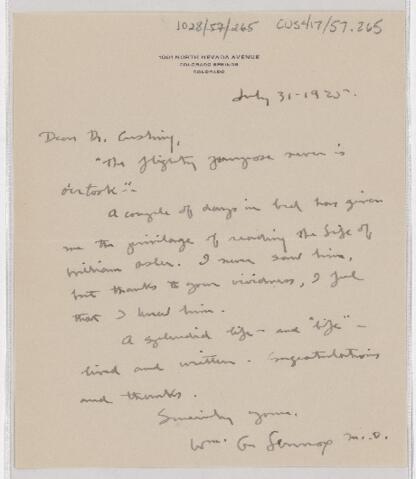 1028/57/265 CUS417/57.265
1001 NORTH NEVADA AVENUE
COLORADO SPRINGS
COLORADO
July 31-1925.
Dear Dr. Cushing,
"The flighty purpose never is
o'ertook"-
A couple of days in bed has given
me the privilage of reading the Life of
William Osler. I never saw him,
but thanks to your vividness, I feel
that I knew him.
A splendid life - and "life" -
lived and written. Congratulations
and thanks.
Sincerely yours,
Wm. G. Lennox M.D.